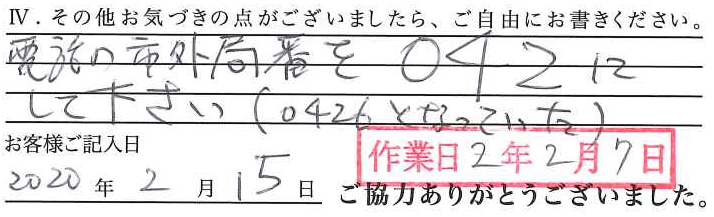 Ⅳ．その他お気づきの点がございましたら、ご自由にお書きください。
電話の市外局番を 042に
して下さい(0426となっていた)
お客様ご記入日
作業日2年2月7日
2020年2月15日 ご協力ありがとうございました。